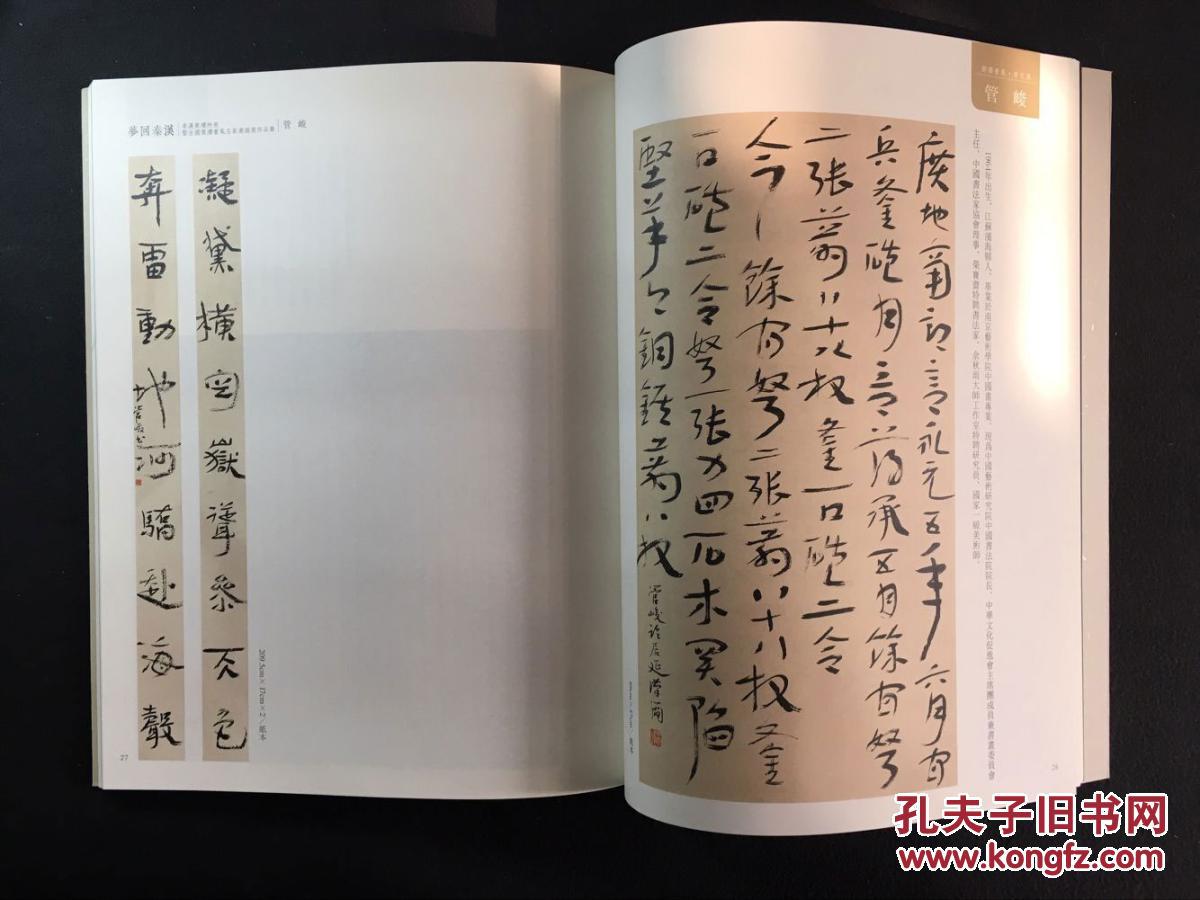 夢回秦漢
管峻
凝黛橫空嶽聳參天色
奔雷動地河驕赴海聲
管峻書
209.5cm×17cm×2/紙本
27
管峻
1964年出生，江蘇濱海縣人，畢業於南京藝術學院中國畫專業，現爲中國藝術研究院中國書法院院長、中華文化促進會主席團成員兼書畫委員會
主任、中國書法家協會理事、榮寶齋特聘書法家、余秋雨大師工作室特聘研究員、國家一級美術師。
廣地南部言永元五年六月官
兵釜磑月言簿承五月餘官弩
二張箭八十八枚釜一口磑二合
今餘官弩二張箭八十八枚釜
一口磑二合弩一張力四石木關陷
堅羊頭銅鍭箭八枚
管峻臨居延漢簡
28
孔夫子旧书网
www.kongfz.com